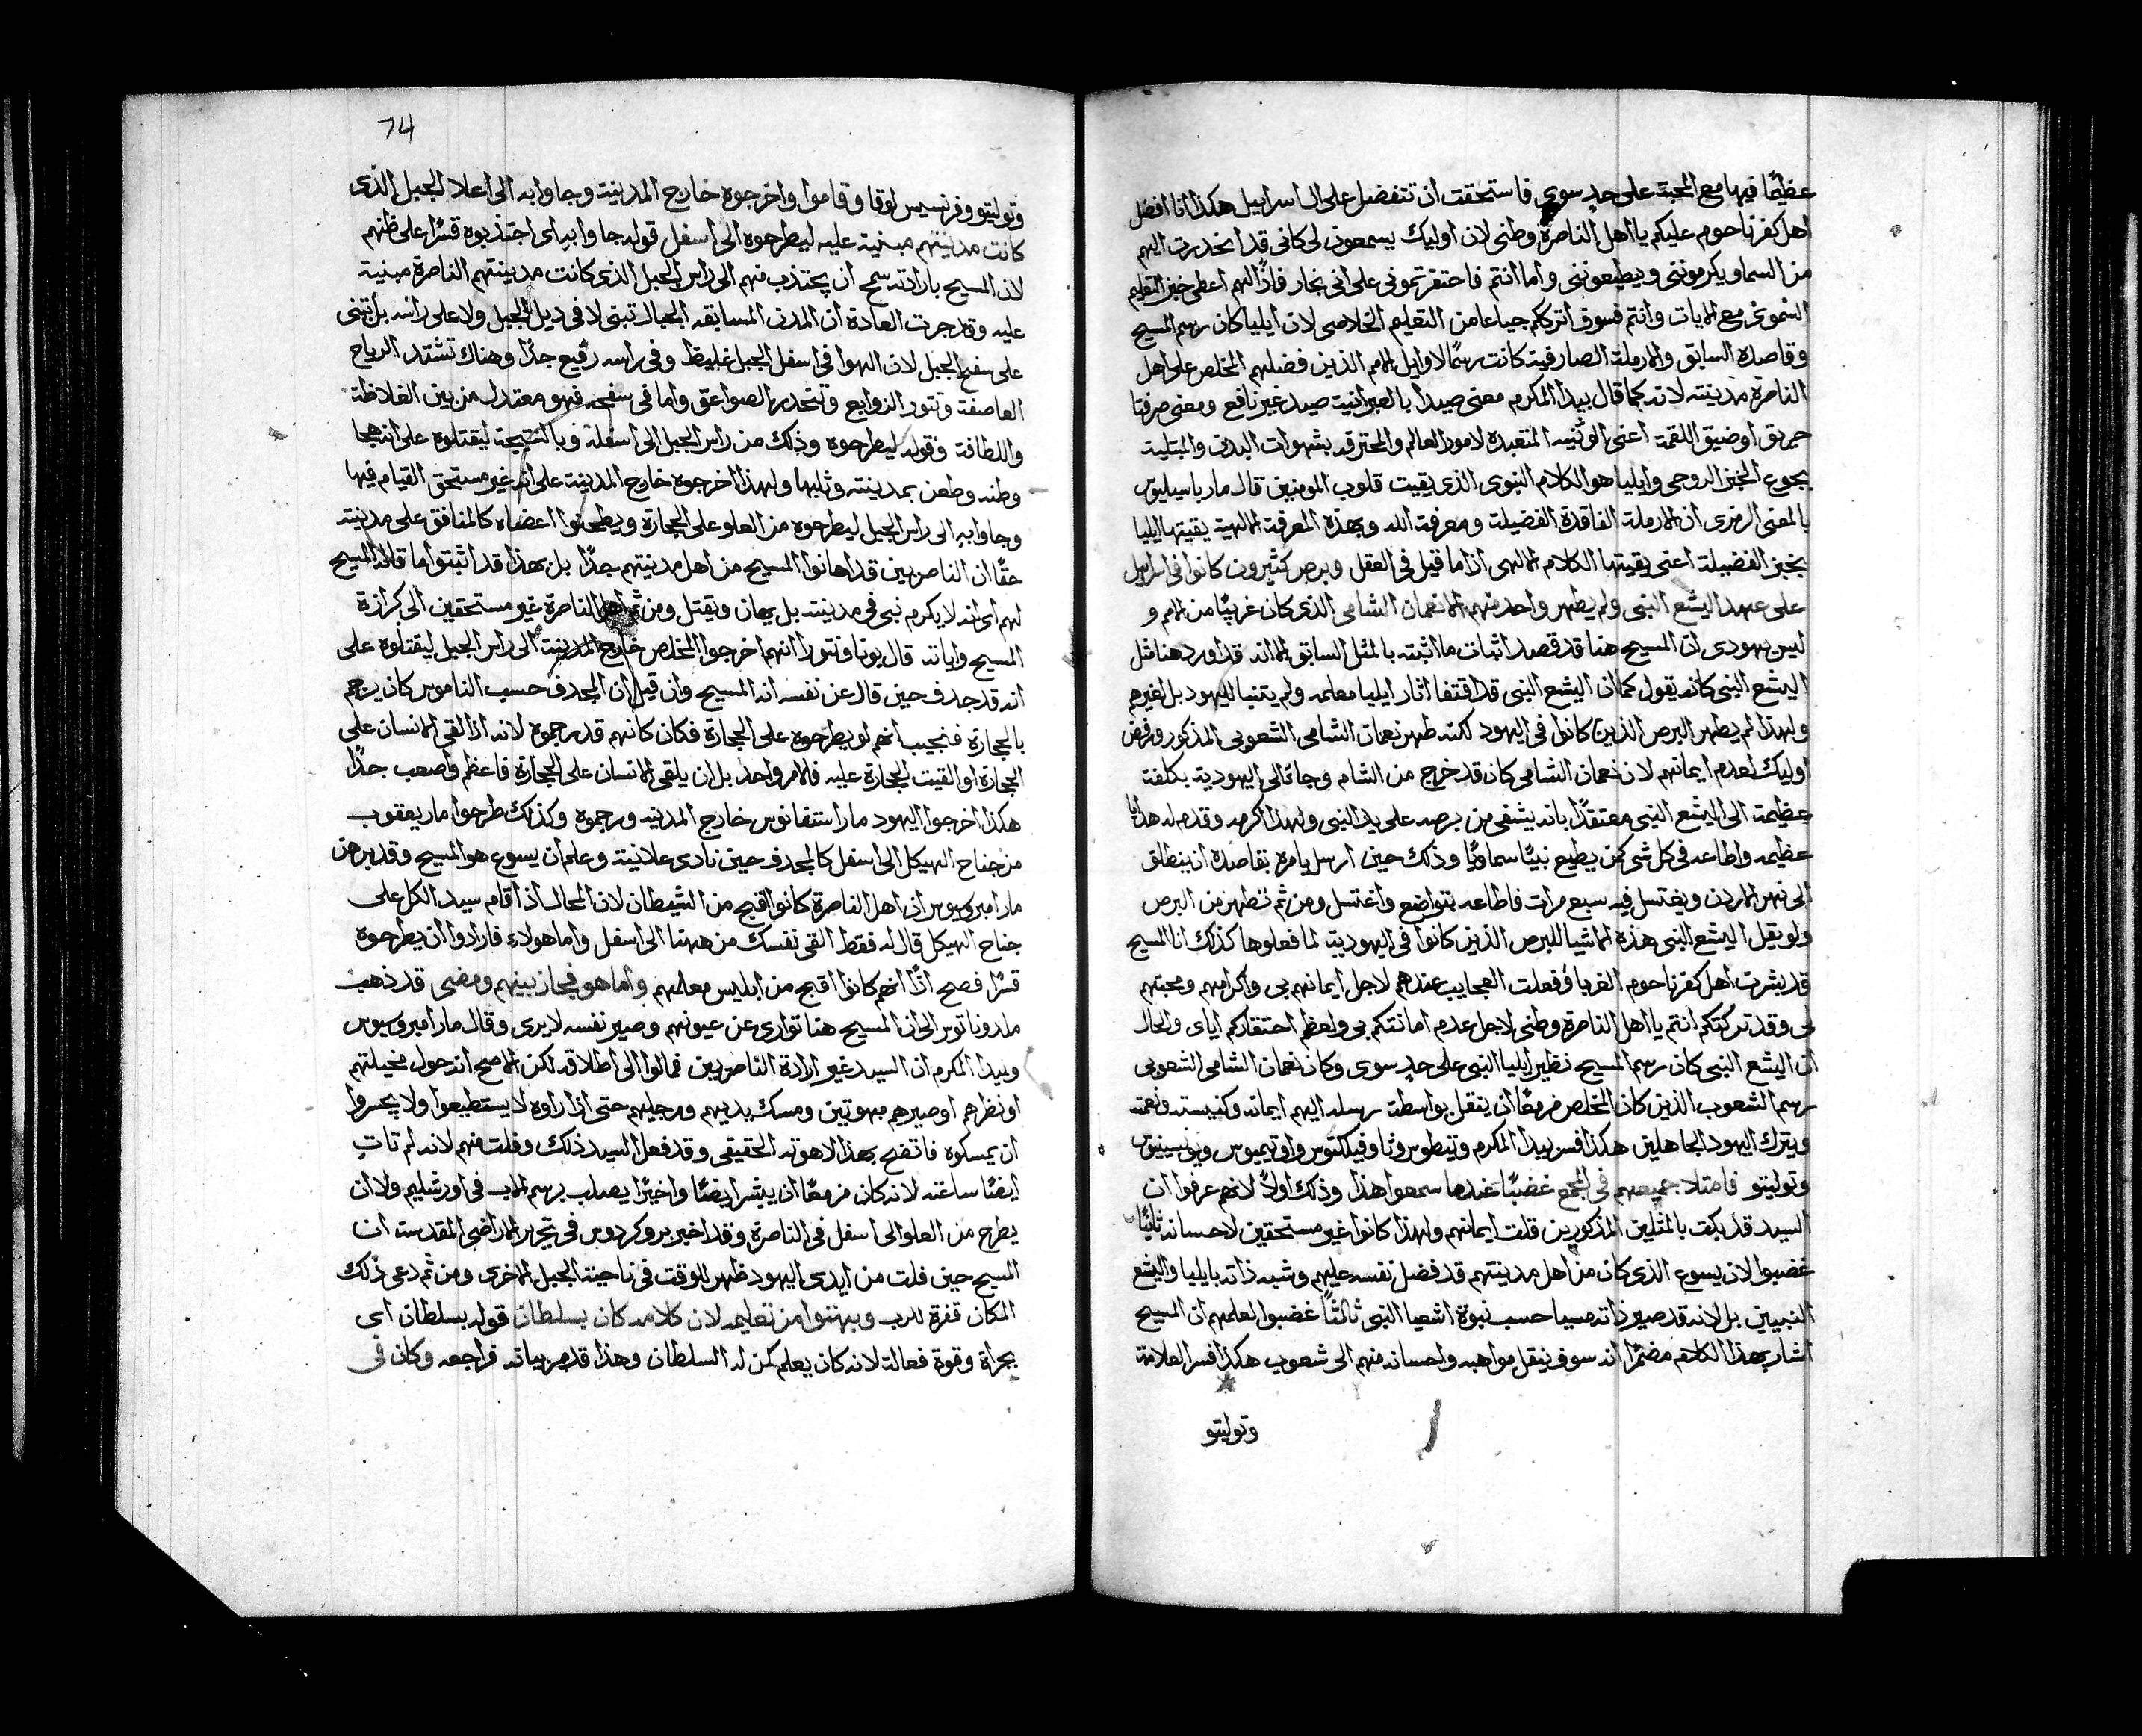 عظيمًا فيهما مع المحبة على حدٍ سوى فاستحقت ان تتفضل على ال اسراييل هكذا انا افضل
اهل كفرناحوم عليكم يا اهل الناصرة وطنى لان اوليك يسمعون لى كانى قد انحدرت اليهم
من السما ويكرموننى ويطيعوننى واما انتم فاحتقرتمونى على انى نجار فاذًا لهم اعطى خبز التعليم
النموى مع الايات وانتم فسوف اترككم جياعا من التعليم الخلاصى لان ايليا كان رسم المسيح
وقاصده السابق والارملة الصارفية كانت رسمًا لاوايل الامم الذين فضلهم المخلص على اهل
الناصرة مدينته لانه كما قال بيدا المكرم معنى صيدا بالعبرانية صيد غير نافع ومعنى صرفتا
حريق او ضيق اللقمة اعنى الوثنيه المتعبده لامور العالم والمحترقه بشهوات البدن والمبتلية
بجوع الخبز الروحى وايليا هو الكلام النبوى الذى يقيت قلوب المومنين قال مار باسيليوس
بالمعنى الرمزى ان الارملة الفاقدة الفضيلة ومعرفة الله وبهذه المعرفة الالهية يقيتها ايليا
بخبز الفضيلة اعنى يقيتها الكلام الالهى اذا ما قيل فى العقل وبرص كثيرون كانوا فى اسراييل
على عهد اليشع النبى ولم يطهر واحد منهم الا نعمان الشامى الذى كان غريبًا من الامم و
ليس يهودى ان المسيح هنا قد قصد اثبات ما اثبته بالمثل السابق الا انه قد اورد هنا مثل
اليشع النبى كانه يقول كما ان اليشع النبى قد اقتفا اثار ايليا معلمه ولم يتنبا لليهود بل لغيرهم
ولهذا لم يطهر البرص الذين كانوا فى اليهود لكنه طهر نعمان الشامى الشعوبى المذكور ورفض
اوليك لعدم ايمانهم لان نعمان الشامى كان قد خرج من الشام وجا الى اليهودية بكلفة
عظيمة الى اليشع النبى معتقدًا بانه يشفى من برصه على يد النبى ولهذا اكرمه وقدم له هدايا
عظيمه واطاعه فى كل شى كمن يطيع نبيًا سماويًا وذلك حين ارسل يامره بقاصده ان ينطلق
الى نهر الاردن ويغتسل فيه سبع مرات فاطاعه بتواضع واغتسل ومن ثم تطهر من البرص
ولو يقل اليشع النبى هذه الاشيا للبرص الذين كانوا فى اليهودية لما فعلوها كذلك انا المسيح
قد بشرت اهل كفرناحوم الغربا وفعلت العجايب عندهم لاجل ايمانهم بى واكرامهم ومحبتهم
لى وقد تركتكم انتم يا اهل الناصرة وطنى لاجل عدم امانتكم بى ولعظم احتقاركم اياى والحال
ان اليشع النبى كان رسم المسيح نظير ايليا النبى على حدٍ سوى وكان نعمان الشامى الشعوبى
رسم الشعوب الذين كان المخلص مزمعًا ان ينقل بواسطة رسله اليهم ايمانه وكنيسته ونعمته
ويترك اليهود الجاهلين هكذا فسر بيدا المكرم وتيطوس وثاوفيلكتوس واوتيميوس
وتوليتو فامتلا جميعهم فى المجمع غضبًا عندما سمعوا هذا وذلك اولًا لانهم عرفوا ان
السيد قد بكت بالمثلين المذكورين قلت ايمانهم ولهذا كانوا غير مستحقين لاحسانه ثانيًا
غضبوا لان يسوع الذى كان من اهل مدينتهم قد فضل نفسه عليهم وشبه ذاته بايليا واليشع
النبيين بل لانه قد صير ذاته مسيا حسب نبوة اشعيا النبى ثالثًا غضبوا لعلمهم ان المسيح
اشار بهذا الكلام مضمرًا انه سوف ينقل مواهبه واحسانه منهم الى شعوب هكذا فسر العلامة
وتوليتو
74
وتوليتو وفرنسيس لوقا وقاموا واخرجوه خارج المدينة وجاوا به الى اعلا الجبل الذى
كانت مدينتهم مبنية عليه ليطرحوه الى اسفل قوله جاوا به اى اجتذبوه قسرًا على ظنهم
لان المسيح بارادته سمح ان يجتذب منهم الى راس الجبل الذى كانت مدينتهم الناصرة مبنية
عليه وقد جرت العادة ان المدن المسابقه الجبال تبنى لا فى ديل الجبل ولا على راسه بل تبنى
على سفح الجبل لان الهوا فى اسفل الجبل غليظ وفى راسه رفيع جدًا وهناك تشتد الرياح
العاصفة وتثور الزوابع وتنحدر الصواعق واما فى سفحه فهو معتدل من بين الغلاظة
واللطافة وقوله ليطرحوه وذلك من راس الجبل الى اسفله وبالنتيجة ليقتلوه على انه هجا
وطنه وطعن بمدينته وثلبها ولهذا اخرجوه خارج المدينة على انه غير مستحق القيام فيها
وجاوا به الى راس الجبل ليطرحوه من العلو على الحجارة ويطحنوا اعضاه كالمنافق على مدينته
حقًا ان الناصريين قد اهانوا المسيح من اهل مدينتهم جدًا بل بهذا قد اثبتوا ما قاله المسيح
لهم اى انه لا يكرم نبى فى مدينته بل يهان ويقتل ومن ثم اهل الناصرة غير مستحقين الى كرازة
المسيح واياته قال بوناونتورا انهم اخرجوا المخلص خارج المدينة الى راس الجبل ليقتلوه على
انه قد جدف حين قال عن نفسه انه المسيح وان قيل ان المجدف حسب الناموس كان يرجم
بالحجارة فنجيب انهم لو يطرحوه على الحجارة فكان كانهم قد رجموه لانه اذا القى الانسان على
الحجارة او القيت الحجارة عليه فالامر واحد بل ان يلقى الانسان على الحجارة فاعظم واصعب جدًا
هكذا اخرجوا اليهود مار استفانوس خارج المدينه ورجموه وكذلك طرحوا مار يعقوب
من جناح الهيكل الى اسفل كالمجدف حين نادى علانية وعلم ان يسوع هو المسيح وقد برهن
مار امبروسيوس ان اهل الناصرة كانوا اقبح من الشيطان لان المحال اذ اقام سيد الكل على
جناح الهيكل قال له فقط القى نفسك من ههنا الى اسفل واما هولاء فارادوا ان يطرحوه
قسرًا فصح اذًا انهم كانوا اقبح من ابليس معلمهم واما هو فجاز بينهم ومضى قد ذهب
ملدوناتوس الى ان المسيح هنا توارى عن عيونهم وصير نفسه لا يرى وقال مار امبروسيوس
وبيدا المكرم ان السيد غير ارادة الناصريين فمالوا الى اطلاقه لكن الاصح انه حول مخيلتهم
او نظرهم او صيرهم مبهوتين ومسك يديهم ورجليهم حتى اذا راوه لا يستطيعوا ولا يجسروا
ان يمسكوه فاتضح بهذا لاهوته الحقيقى وقد فعل السيد ذلك وفلت منهم لانه لم تاتِ
ايضًا ساعته لانه كان مزمعًا ان يبشر ايضًا واخيرًا يصلب برسم الاب فى اورشليم ولا ان
يطرح من العلو الى اسفل فى الناصرة وقد اخبر بروكردوس فى تحرير الاراضى المقدسة ان
المسيح حين فلت من ايدى اليهود ظهر للوقت فى ناحية الجبل الاخرى ومن ثم دعى ذلك
المكان قفزة للرب وبهتوا من تعليمه لان كلامه كان بسلطان قوله بسلطان اى
بجراة وقوة فعالة لانه كان يعلم كمن له السلطان وهذا قد مر بيانه فراجعه وكان فى